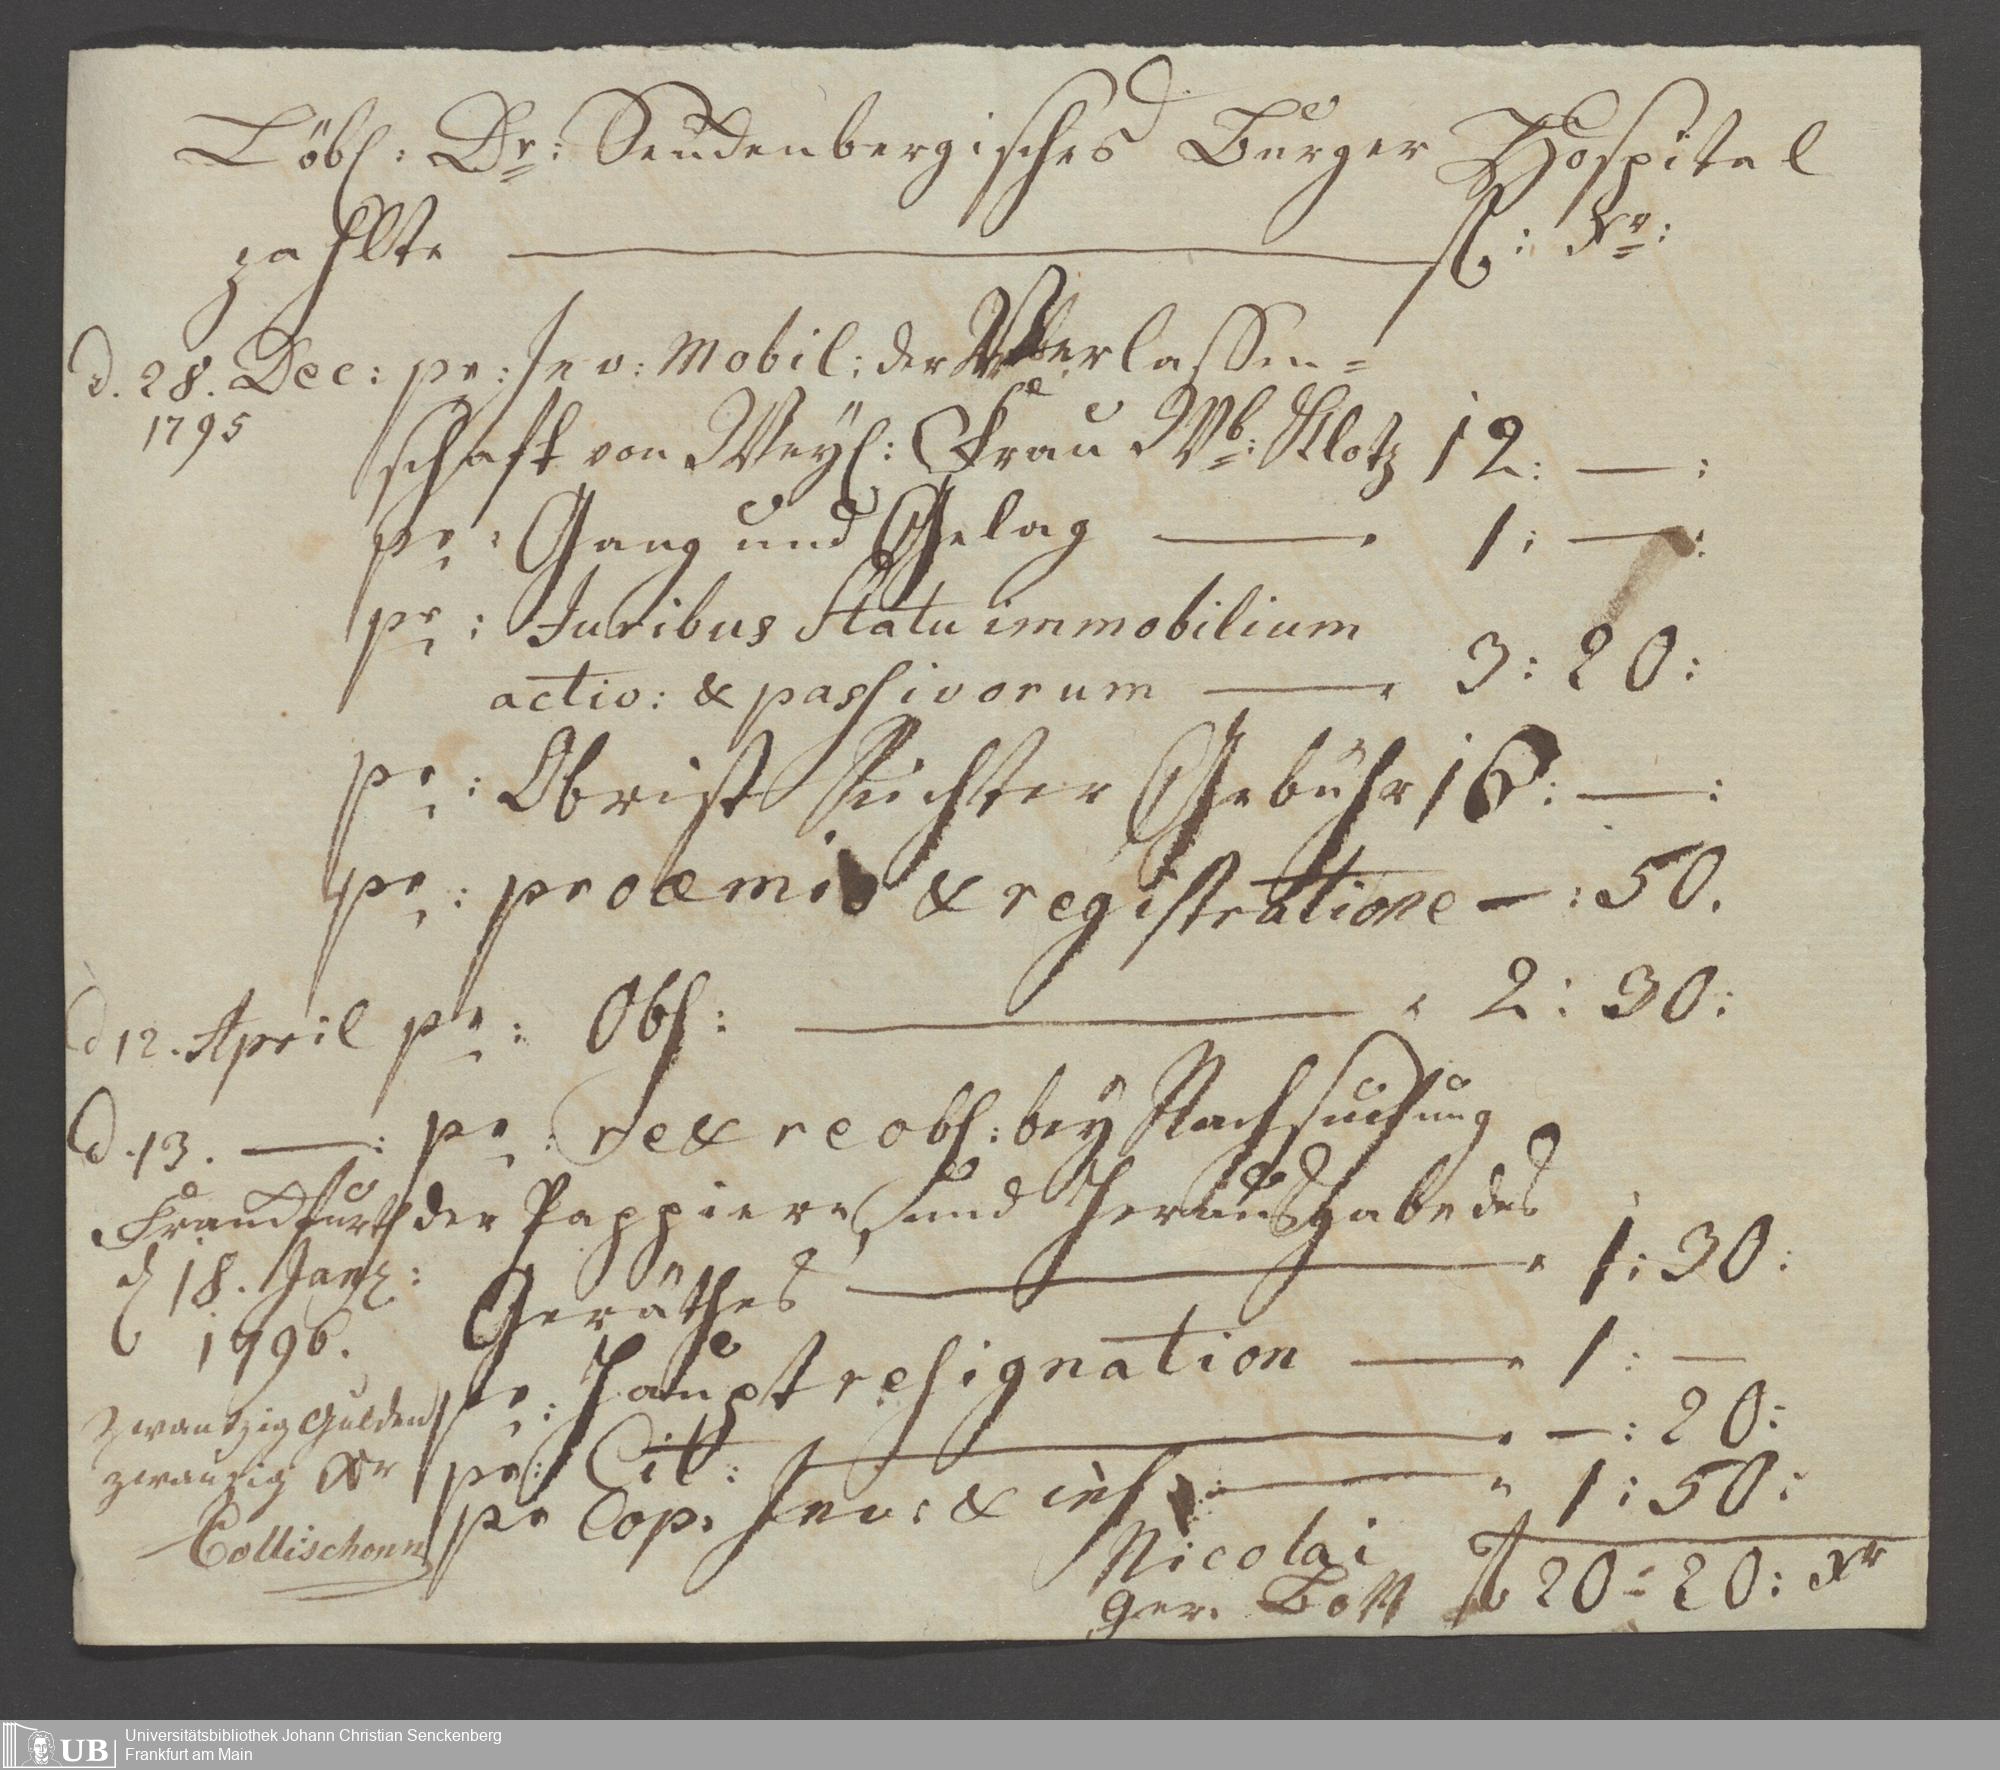 Löbl: Dr: Senckenbergisches Burger Hospital
zahlte fl: Xr:
d. 28. Dec: pr: Inv: Mobil: der Verlassen=
1795
schaft von Weyl: Frau Wb: Klotz 12: —:
pr: Gang und Gelag — 1: —:
pr: Juribus Statu immobilium
activ: & passivorum — 3: 20:
pr: Obrist Richter Gebühr :—:
pr: proæmio & registratione — : 50.
d 12. April pr: Obs: — 2: 30:
d. 13. —: pr: re & reobs: bey Nachsuchung
Franckfurth der Pappiere, und Herausgabe des
d 18. Janr:
Geräthes — 1: 30:
1796.
pr: Hauptresignation — 1: —
Zwantzig Gulden
pr: Cit: — —: 20:
zwanzig Xr
pr Cop. Inv: & — 1: 50:
Collischonn
Nicolai
Ger. Bott fl 20: 20: Xr
Universitätsbibliothek Johann Christian Senckenberg
UB Frankfurt am Main